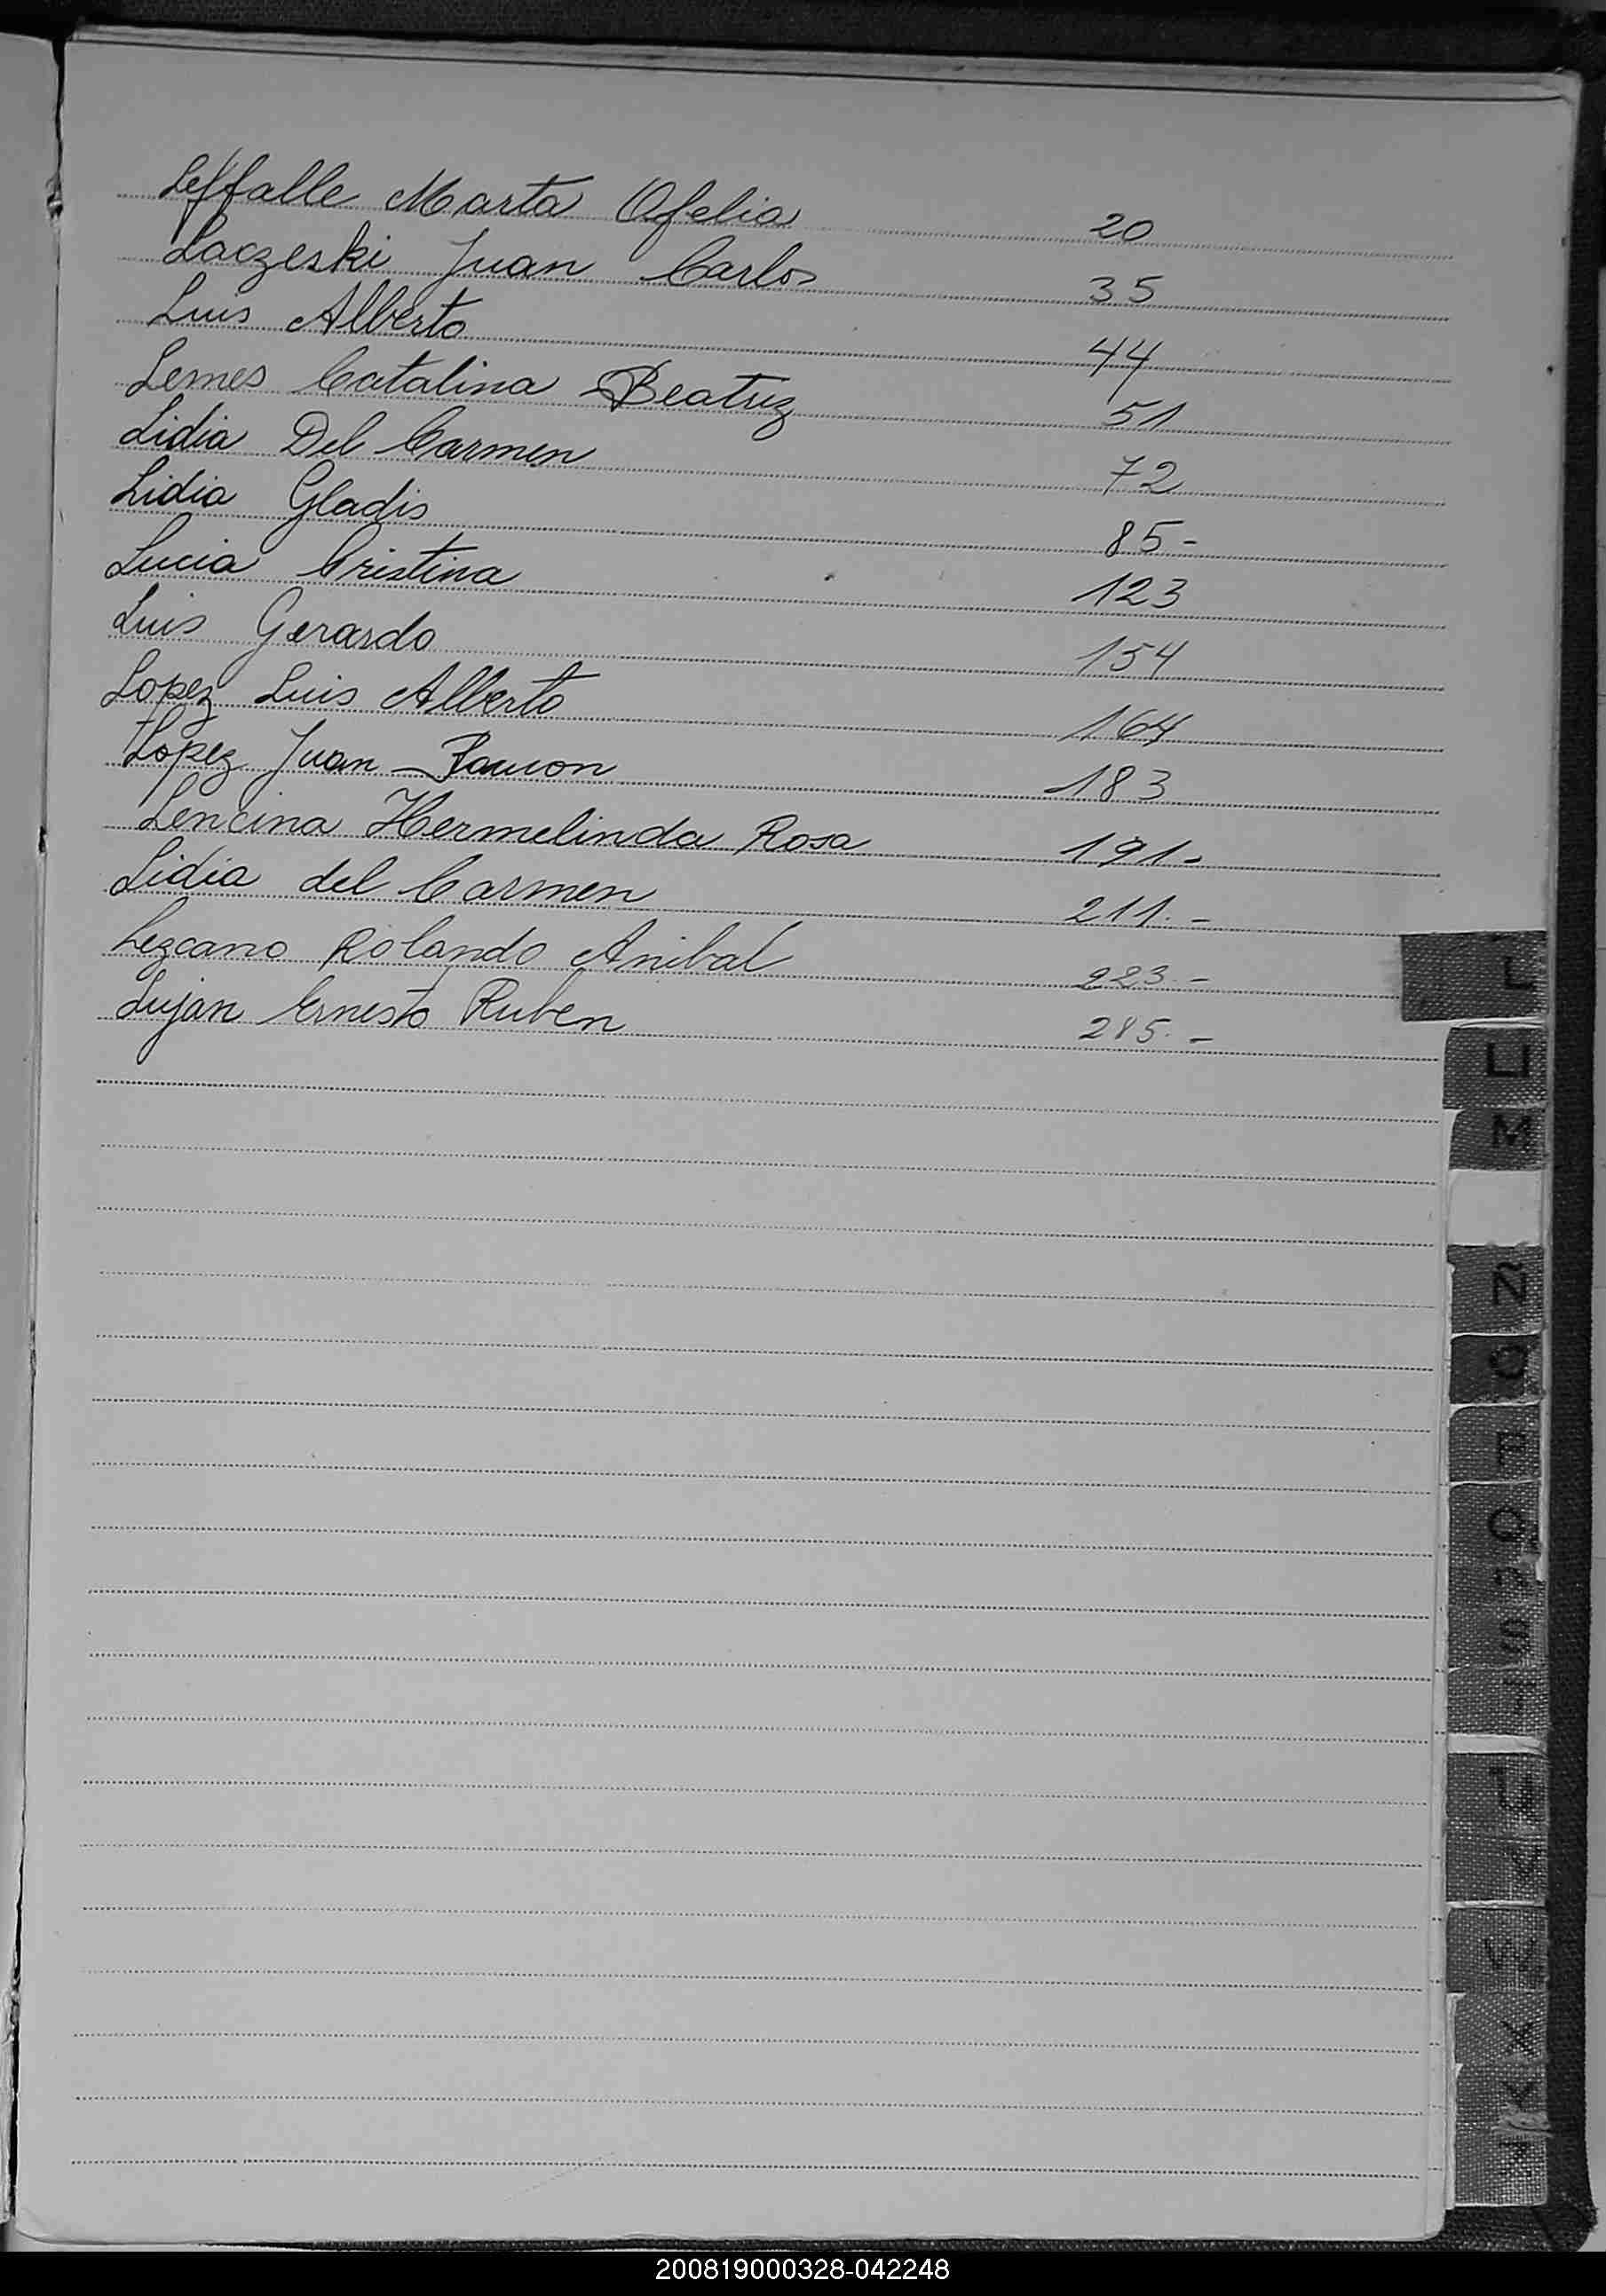 Leffalle Marta Ofelia 20
Laczeski Juan Carlos 35
Luis Alberto 44
Lemes Catalina Beatriz 51
Lidia Del Carmen 72
Lidia Gladis 85-
Lucia Cristina 123
Luis Gerardo 154
Lopez Luis Alberto 164
Lopez Juan Ramon 183
Lencina Hermelinda Rosa 191-
Lidia del Carmen 211.-
Lezcano Rolando Anibal 223.-
Lujan Ernesto Ruben 285.-
L
LL
M
Ñ
O
P
Q
R
S
T
U
V
W
X
Y
Z
200819000328-042248